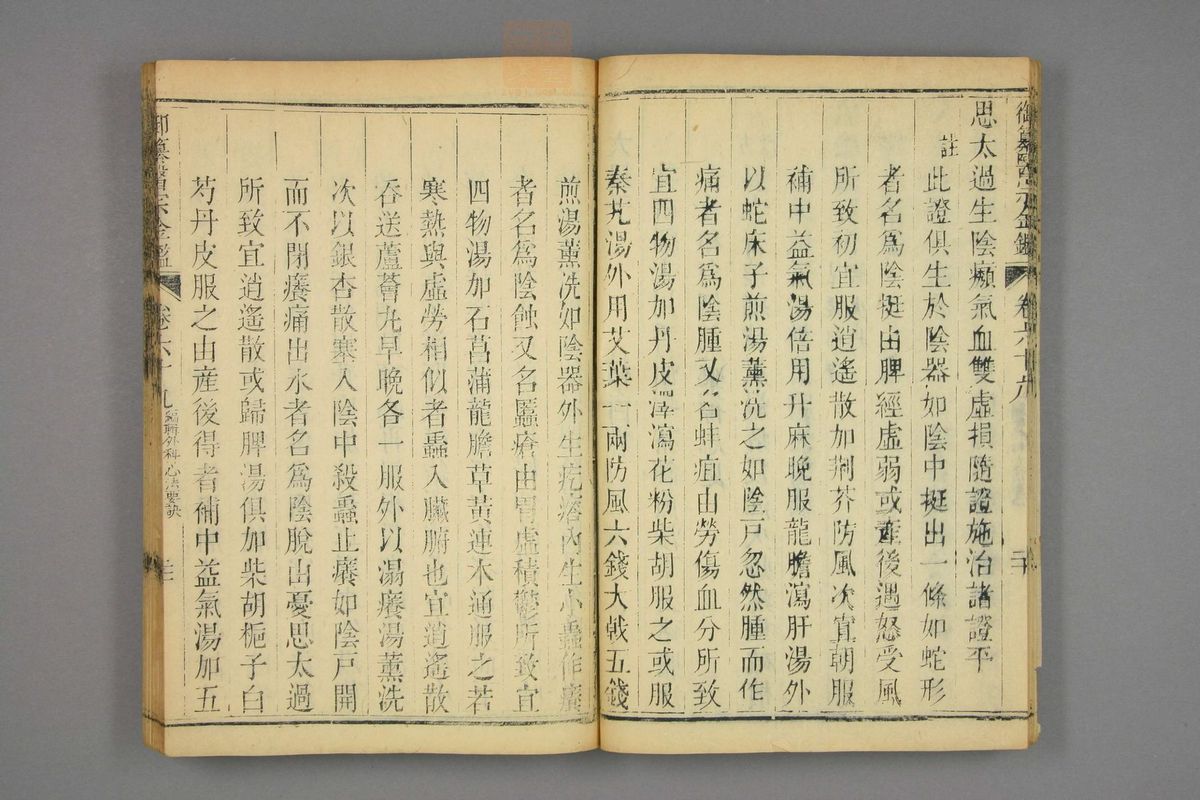 御纂醫宗金鑑 卷六十九 二十
思太過生陰癩氣血雙虛損隨證施治諸證平
註
此證俱生於陰器如陰中挺出一條如蛇形
者名爲陰挺由脾經虛弱或產後遇怒受風
所致初宜服逍遙散加荆芥防風次宜朝服
補中益氣湯倍用升麻晚服龍膽瀉肝湯外
以蛇床子煎湯薰洗之如陰戸忽然腫而作
痛者名爲陰腫又名蚌疽由勞傷血分所致
宜四物湯加丹皮澤瀉花粉柴胡服之或服
秦艽湯外用艾葉一兩防風六錢大戟五錢
煎湯薰洗如陰器外生疙瘩內生小蟲作癢
者名爲陰蝕又名䘌瘡由胃虛積鬱所致宜
四物湯加石菖蒲龍膽草黃連木通服之若
寒熱與虛勞相似者蟲入臟腑也宜逍遙散
吞送蘆薈丸早晚各一服外以溻癢湯薰洗
次以銀杏散塞入陰中殺蟲止癢如陰戸開
而不閉癢痛出水者名爲陰脫由憂思太過
所致宜逍遙散或歸脾湯俱加柴胡梔子白
芍丹皮服之由産後得者補中益氣湯加五
御纂醫宗金鑑 卷六十九 編輯外科心法要訣